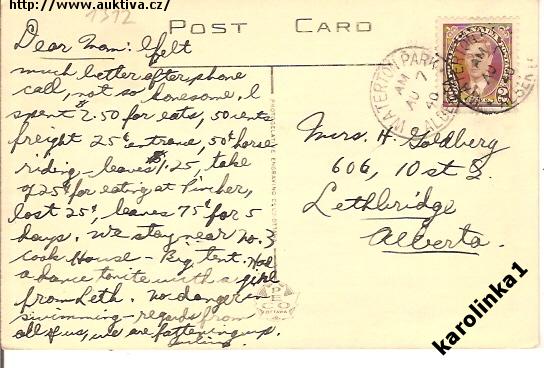 http://www.auktiva.cz/
1312
POST CARD
Dear Mom: I felt
much better after phone
call, not so lonesome. I
spent $2.50 for eats, 50 cents
freight 25¢ entrance, 50¢ horse
riding - leaves $1.25, take
of 25¢ for eating at Pincher,
lost 25¢, leaves 75¢ for 5
days. We stay near No. 3
cook House - Big tent. Had
a dance tonite with a girl
from Leth. No danger in
swimming - regards from
all of us, we are fattening up.
WATERTON PARK
AM
AU 7
40
ALBERTA
Mrs. H. Goldberg
606, 10 st S.
Lethbridge
Alberta.
PECO
OTTAWA
karolinka1